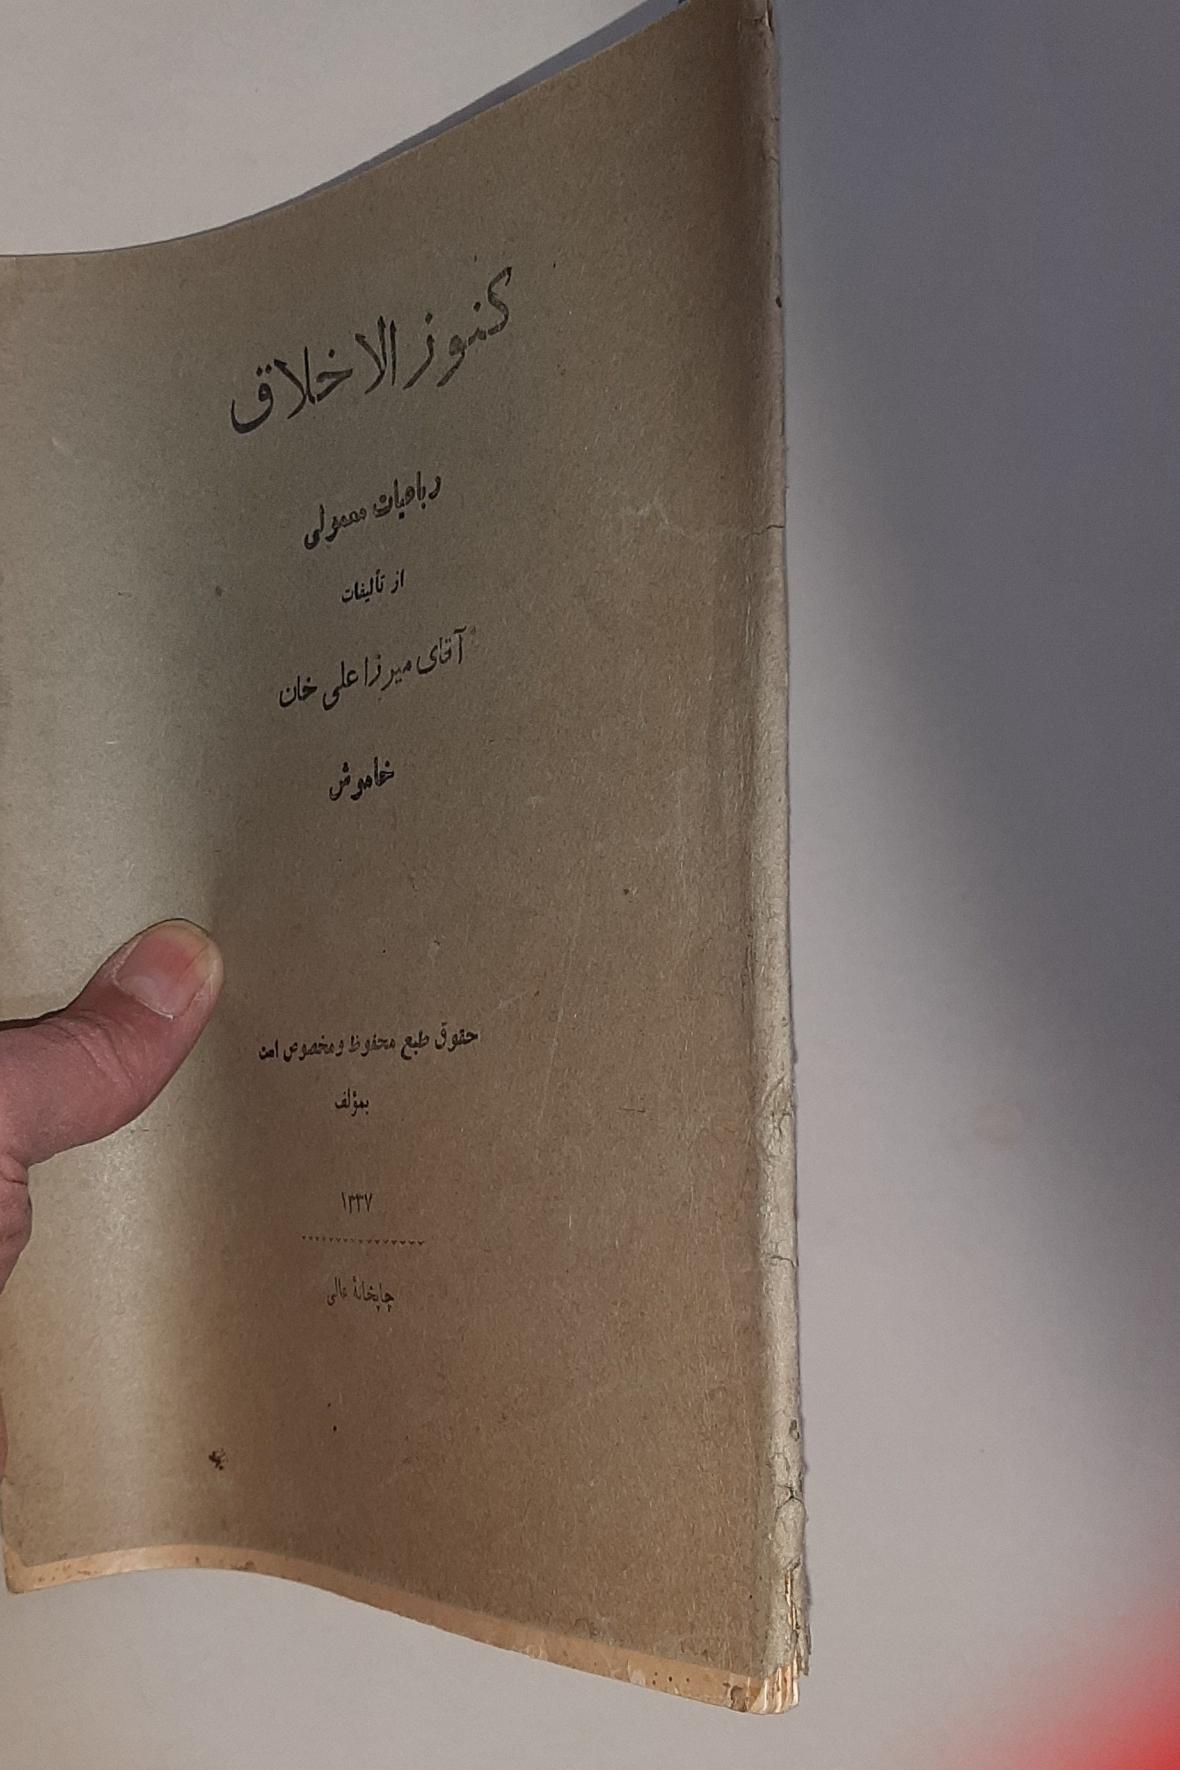 کنوز الاخلاق
رباعیات معمولی
از تألیفات
آقای میرزا علی خان
خاموش
حقوق طبع محفوظ و مخصوص است
بمؤلف
۱۳۳۷
چاپخانهٔ عالی